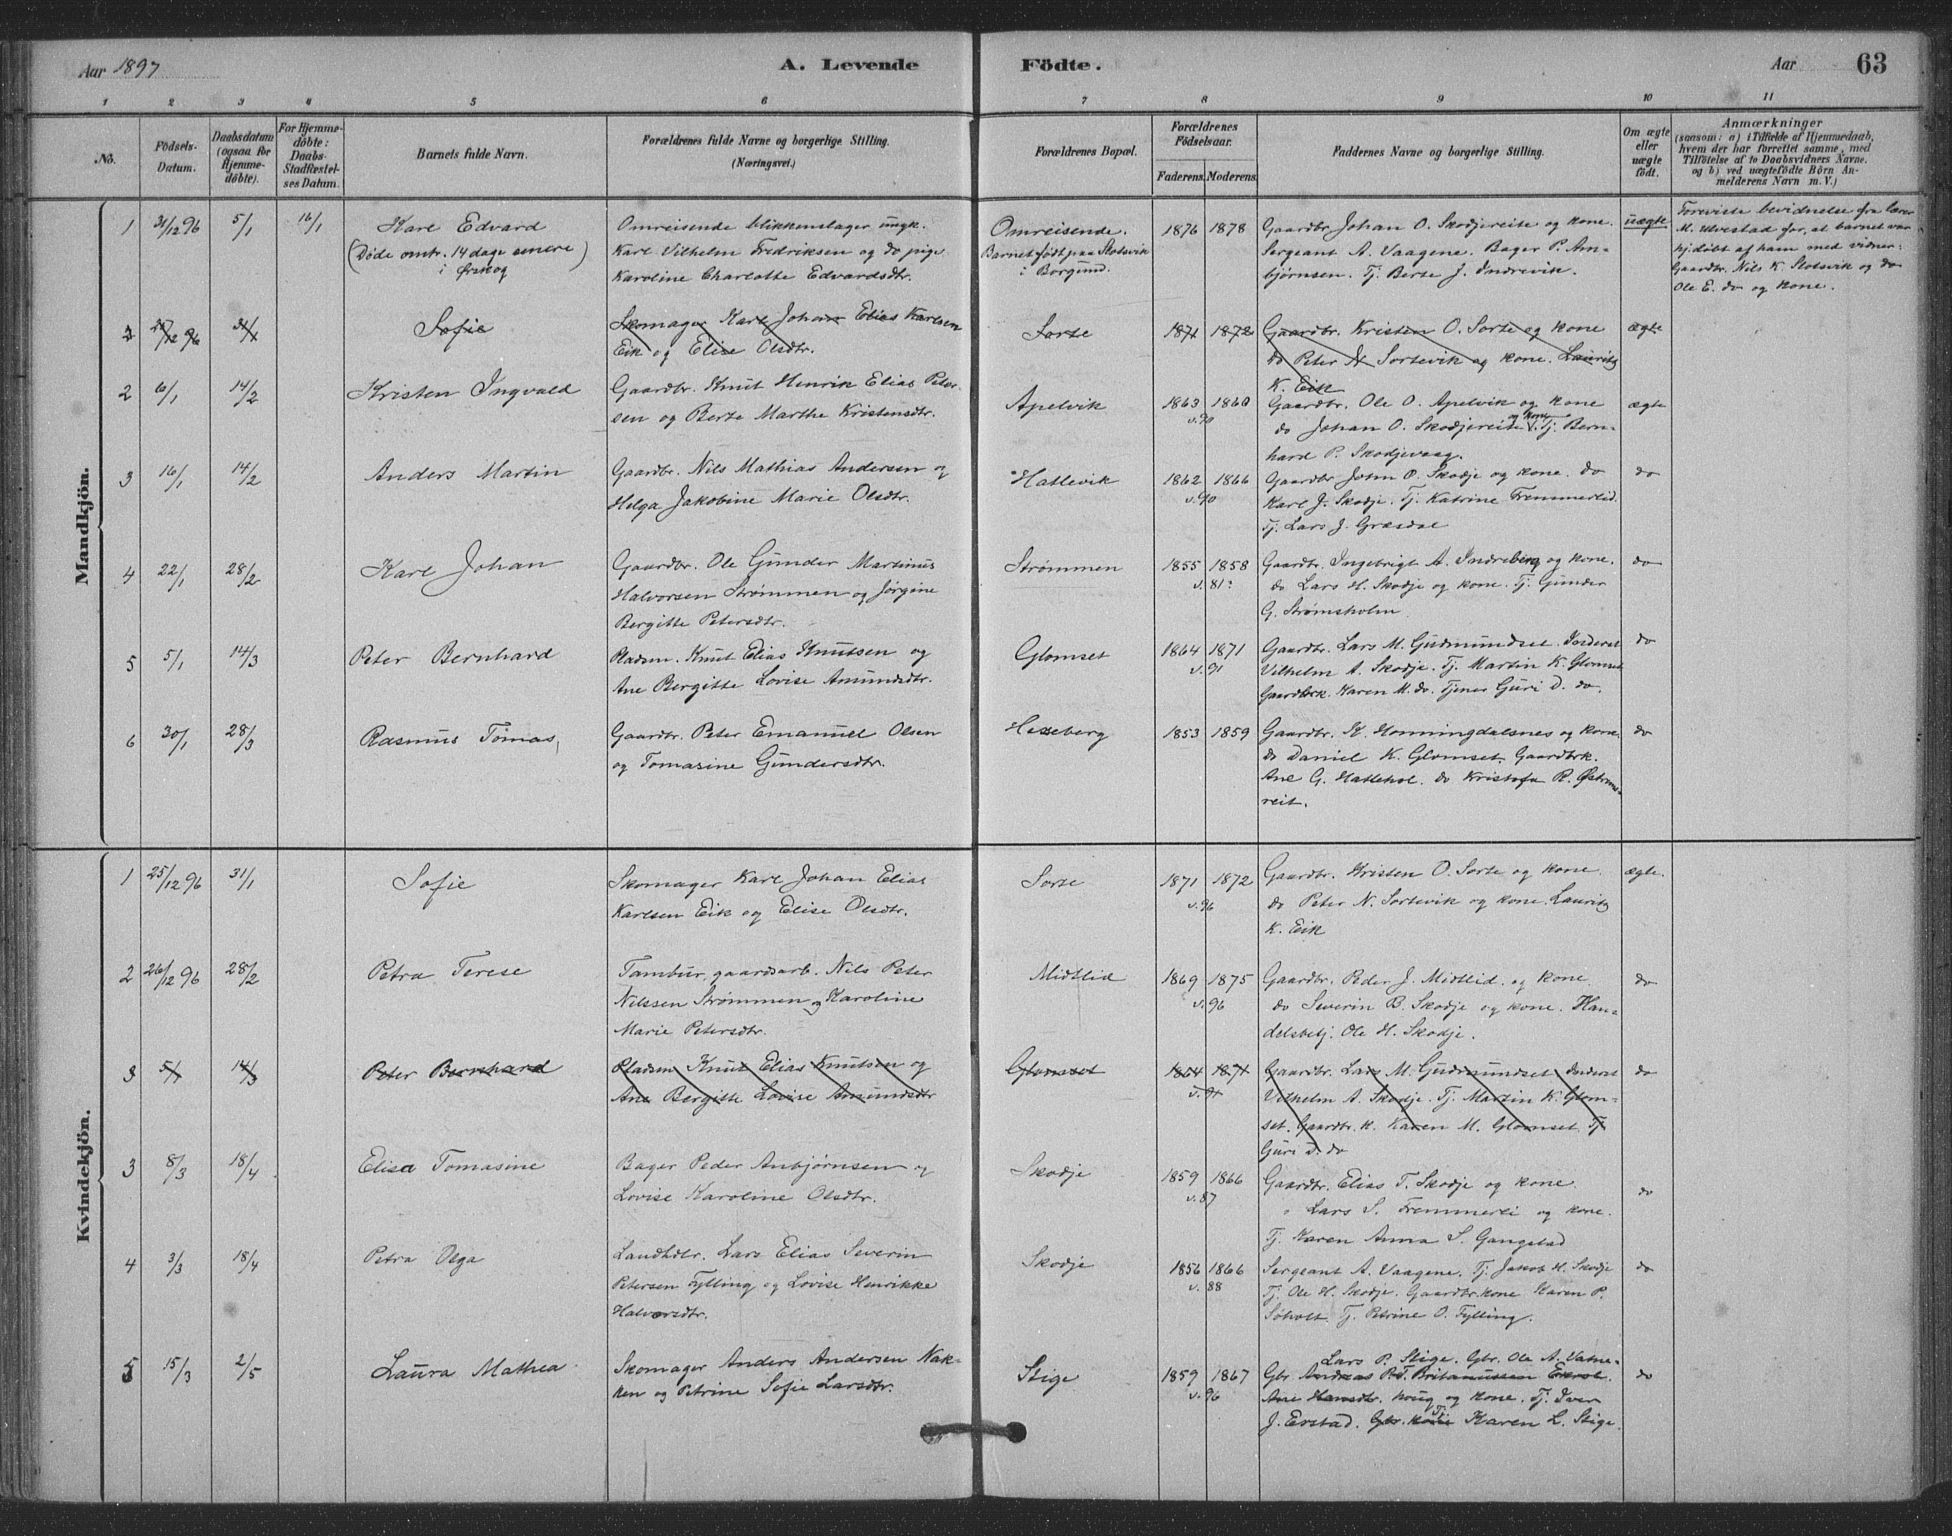 Aar 1897 A. Levende Födte. Aar 63
1 2 3 4 5 6 7 8 9 10 11
No.
Födsels-Datum.
Daabsdatum (ogsaa for Hjemme-döbte).
For Hjemme-döbte: Daabs-Stadfæstel-ses Datum.
Barnets fulde Navn.
Forældrenes fulde Navne og borgerlige Stilling.
(Næringsvei.)
Forældrenes Bopæl.
Forældrenes Födselsaar.
Faderens. Moderens.
Faddernes Navne og borgerlige Stilling.
Om ægte eller uægte födt.
Anmærkninger
(saasom: a) i Tilfælde af Hjemmedaab,
hvem der har forrettet samme, med
Tilföielse af to Daabsvidners Navne.
og b) ved uægtefödte Börn An-
melderens Navn m. V.)
Mandkjön.
1 31/12 96 5/1 16/1 Karl Edvard
(Døde omtr. 14 dage senere
i Ørskog)
Omreisende blikkenslager ungk.
Karl Vilhelm Fredriksen og do pige
Karoline Charlotte Edvardsdtr.
Omreisende.
Barnet født paa Slotsvik
i Borgund.
1876 1878
Gaardbr Johan O. Skodjereite og kone.
Sergeant A. Vaagene. Bager P. An-
bjørnsen. Tj. Berte J. Indrevik.
uægte
Foreviste bevidnelse fra lærer
M. Ulvestad for, at barnet var
hj.døbt af ham med vidner:
Gaardbr. Nils K. Slotsvik og do
Ole E. do og kone.
2 25/12 96 31/1 Sofie
Skomager Karl Johan Elias Karlsen
Eik og Elise Olsdtr.
Sorte
1871 1872
Gaardbr. Kristen O. Sorte og kone
do Peter N Sortevik og kone. Lauritz
K. Eik
ægte
2 6/1 14/2 Kristen Ingvald
Gaardbr. Knut Henrik Elias Peter-
sen og Berte Marthe Kristensdtr.
Apelvik
1863 1860
v. 90
Gaardbr. Ole O. Apelvik og kone
do Johan O. Skodjereite og kone. Tj. Bern-
hard P. Skodjevaag.
ægte
3 16/1 14/2 Anders Martin
Gaardbr. Nils Mathias Andersen og
Helga Jakobine Marie Olsdtr.
Hatlevik
1862 1866
v. 90
Gaardbr John O. Skodje og kone. do
Karl J. Skodje. Tj. Katrine Fremmerlid.
Tj. Lars J. Græsdal
do
4 22/1 28/2 Karl Johan
Gaardbr. Ole Gunder Martinus
Halvorsen Strømmen og Jørgine
Bergitte Petersdtr.
Strømmen
1855 1858
v. 81
Gaardbr. Ingebrigt A. Indreberg og kone.
do Lars H. Skodje og kone. Tj. Gunder
G. Strømsholm
do
5 5/1 14/3 Peter Bernhard
Pladsm. Knut Elias Knutsen og
Ane Bergitte Lovise Amundsdtr.
Glomset
1864 1871
v. 91
Gaardbr. Lars M. Gudmundset. Inderst
Vilhelm A. Skodje. Tj. Martin K. Glomset
Gaardbrk. Karen M. do. Tjener Guri D. do.
do
6 30/1 28/3 Rasmus Tomas
Gaardbr. Peter Emanuel Olsen
og Tomasine Gundersdtr.
Hesseberg
1853 1859
Gaardbr. K. Honningdalsnes og kone
do Daniel K. Glomset. Gaardbrk.
Ane G. Hatlehol. do Kristofa R. Østrems-
reit.
do
Kvindekjön.
1 25/12 96 31/1 Sofie
Skomager Karl Johan Elias
Karlsen Eik og Elise Olsdtr.
Sorte
1871 1872
v. 96
Gaardbr. Kristen O. Sorte og kone
do Peter N. Sortevik og kone. Lauritz
K. Eik
ægte.
2 26/12 96 28/2 Petra Terese
Tambur, gaardsarb. Nils Peter
Nilssen Strømmen og Karoline
Marie Petersdtr.
Midtlid
1869 1875
v. 96
Gaardbr. Peder J. Midtlid. og kone
do Severin B. Skodje og kone. Han-
delsbetj. Ole H. Skodje.
do
3 5/1 14/3 Peter Bernhard
Pladsm Knut Elias Knutsen og
Ane Bergitte Lovise Amundsdtr
Glomset
1864 1871
v. 91
Gaardbr. Lars M. Gudmundset Inderst
Vilhelm A. Skodje. Tj. Martin K. Glom-
set. Gaardbr. k. Karen M. Glomset Tj
Guri D. do
do
3 8/3 18/4 Elisa Tomasine
Bager Peder Anbjørnsen og
Lovise Karoline Olsdtr.
Skodje
1859 1866
v. 87
Gaardbr. Elias T. Skodje og kone
" Lars S. Fremmerli og kone.
Tj. Karen Anna S. Gangstad
do
4 3/3 18/4 Petra Olga
Landhdlr. Lars Elias Severin
Petersen Fylling og Lovise Henrikke
Halvorsdtr.
Skodje
1856 1866
v. 88
Sergeant A. Vaagene. Tj. Jakob H. Skodje
Tj. Ole H. Skodje. Gaardbr.kone Karen P.
Søholt. Tj. Petrine O. Fylling.
do
5 15/3 2/5 Laura Mathea
Skomager Anders Andersen Nak-
ken og Petrine Sofie Larsdtr.
Stige
1859 1867
v. 96
Lars P. Stige. Gbr. Ole A. Vatne-
Gbr Andreas
Ane Hansdtr. houg og kone. Tj. Iver
J. Erstad. Gbr. kone Tj. Karen L. Stige.
do